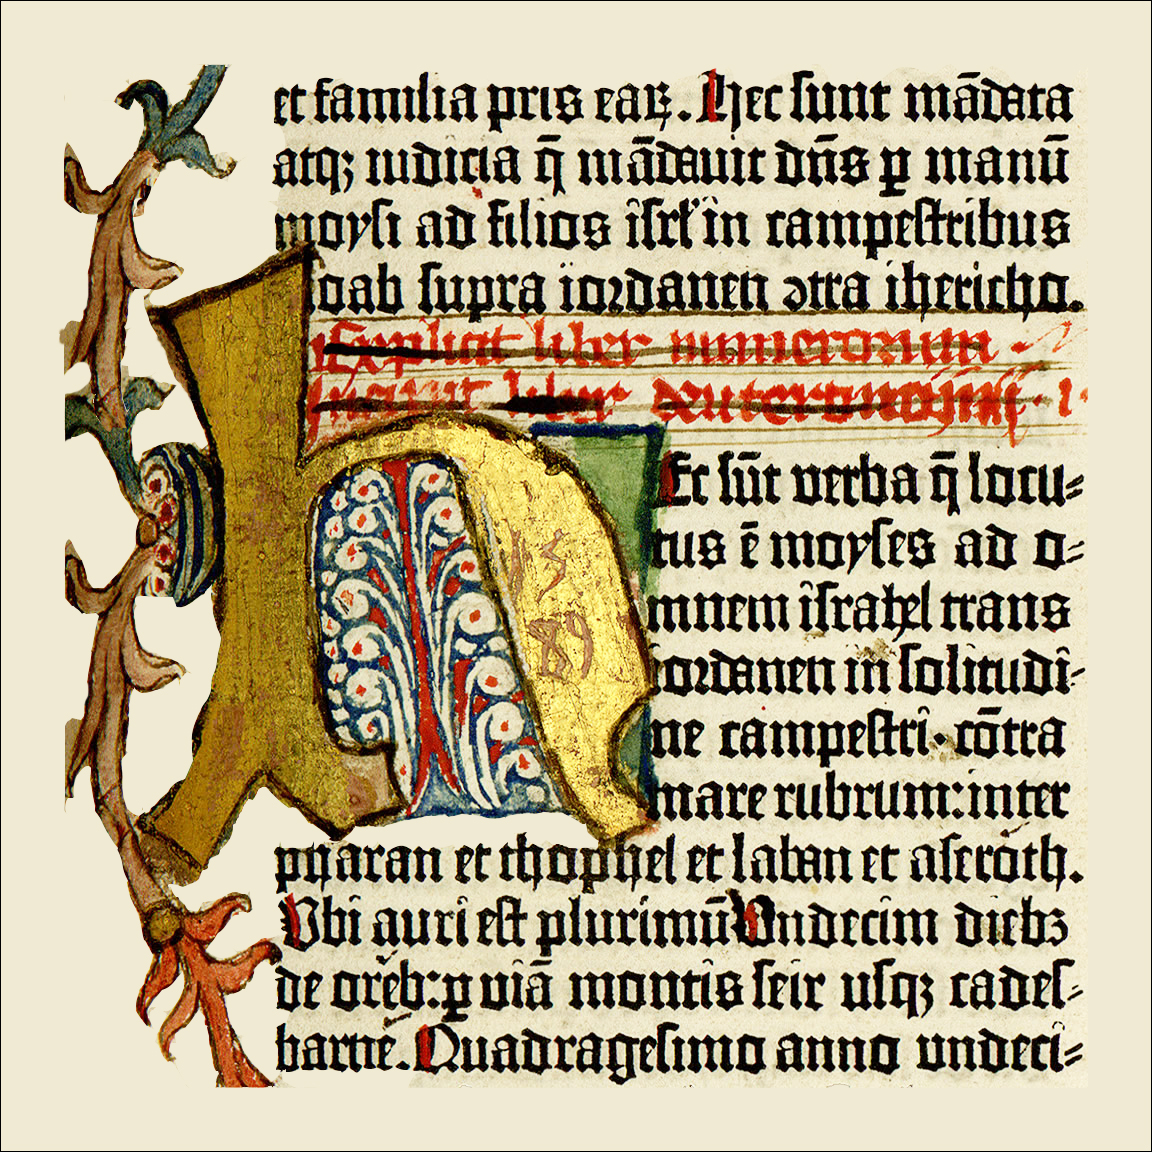 et familia pris eaꝝ. Hec sunt mādata
atqꝫ iudicia q̄ mādauit dn̄s ꝑ manū
moysi ad filios isrl̓ in campestribus
moab supra iordanen ↄtra ihericho.
Explicit liber numerorum
Incipit liber deuteronomii
Hec sūt verba q̄ locu-
tus ē moyses ad o-
mnem israhel trans
iordanen in solitudi-
ne campestri· cōtra
mare rubrum: inter
pharan et thophel et laban et aseroth.
Ubi auri est plurimū Undecim diebꝫ
de oreb: ꝑ viā montis seir usqꝫ cades-
barne. Quadragesimo anno undeci-
15
89